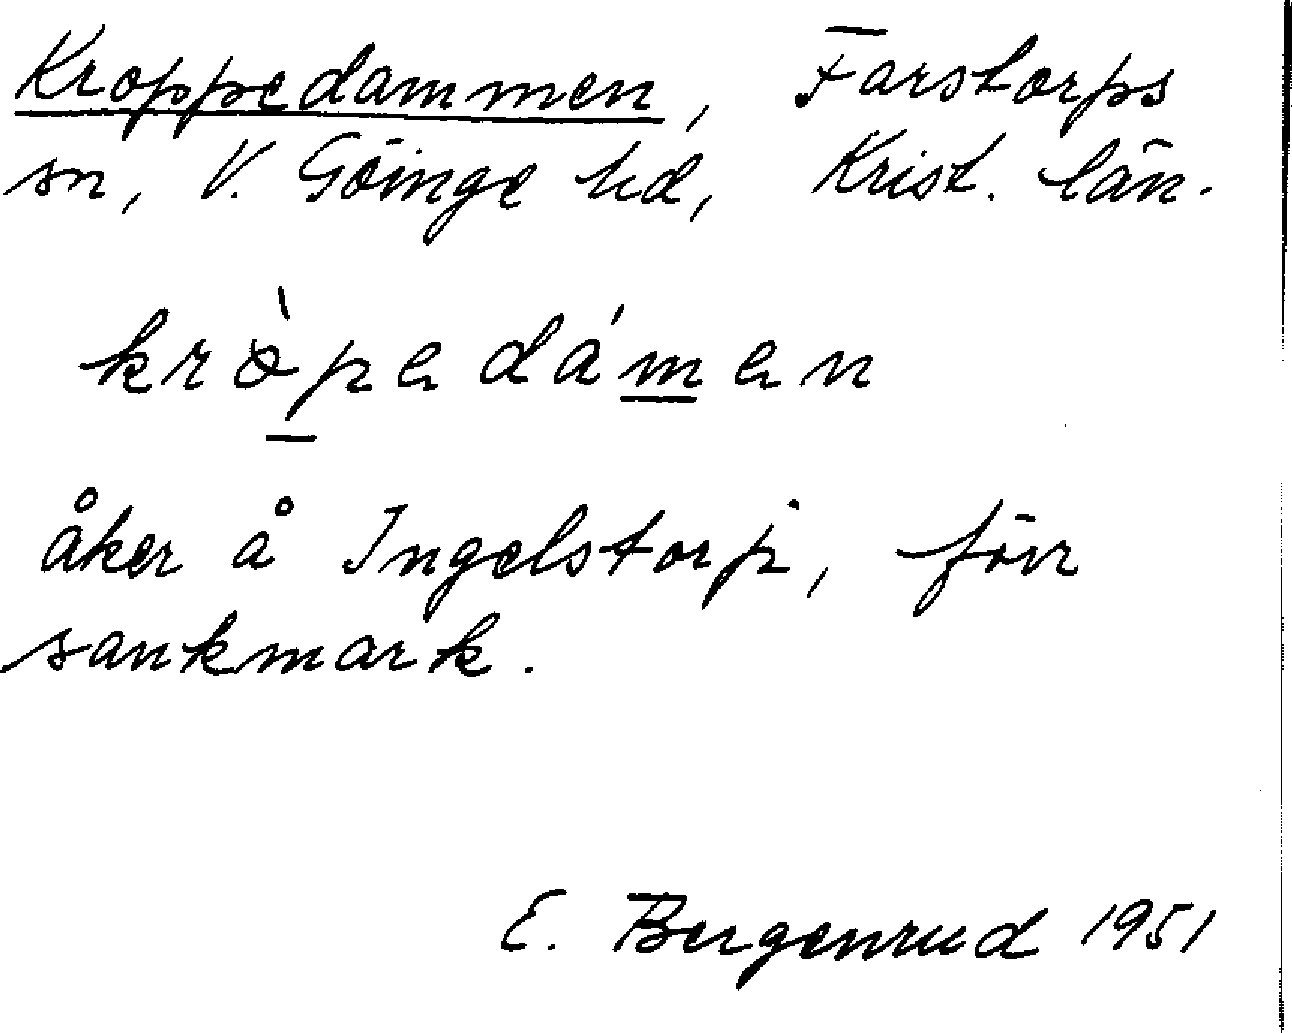 Kroppedammen, Farstorps
sn, V. Göinge hd, Krist. län.
kròpedámen
åker å Ingelstorp, förr
sankmark.
E. Bergenrud 1951